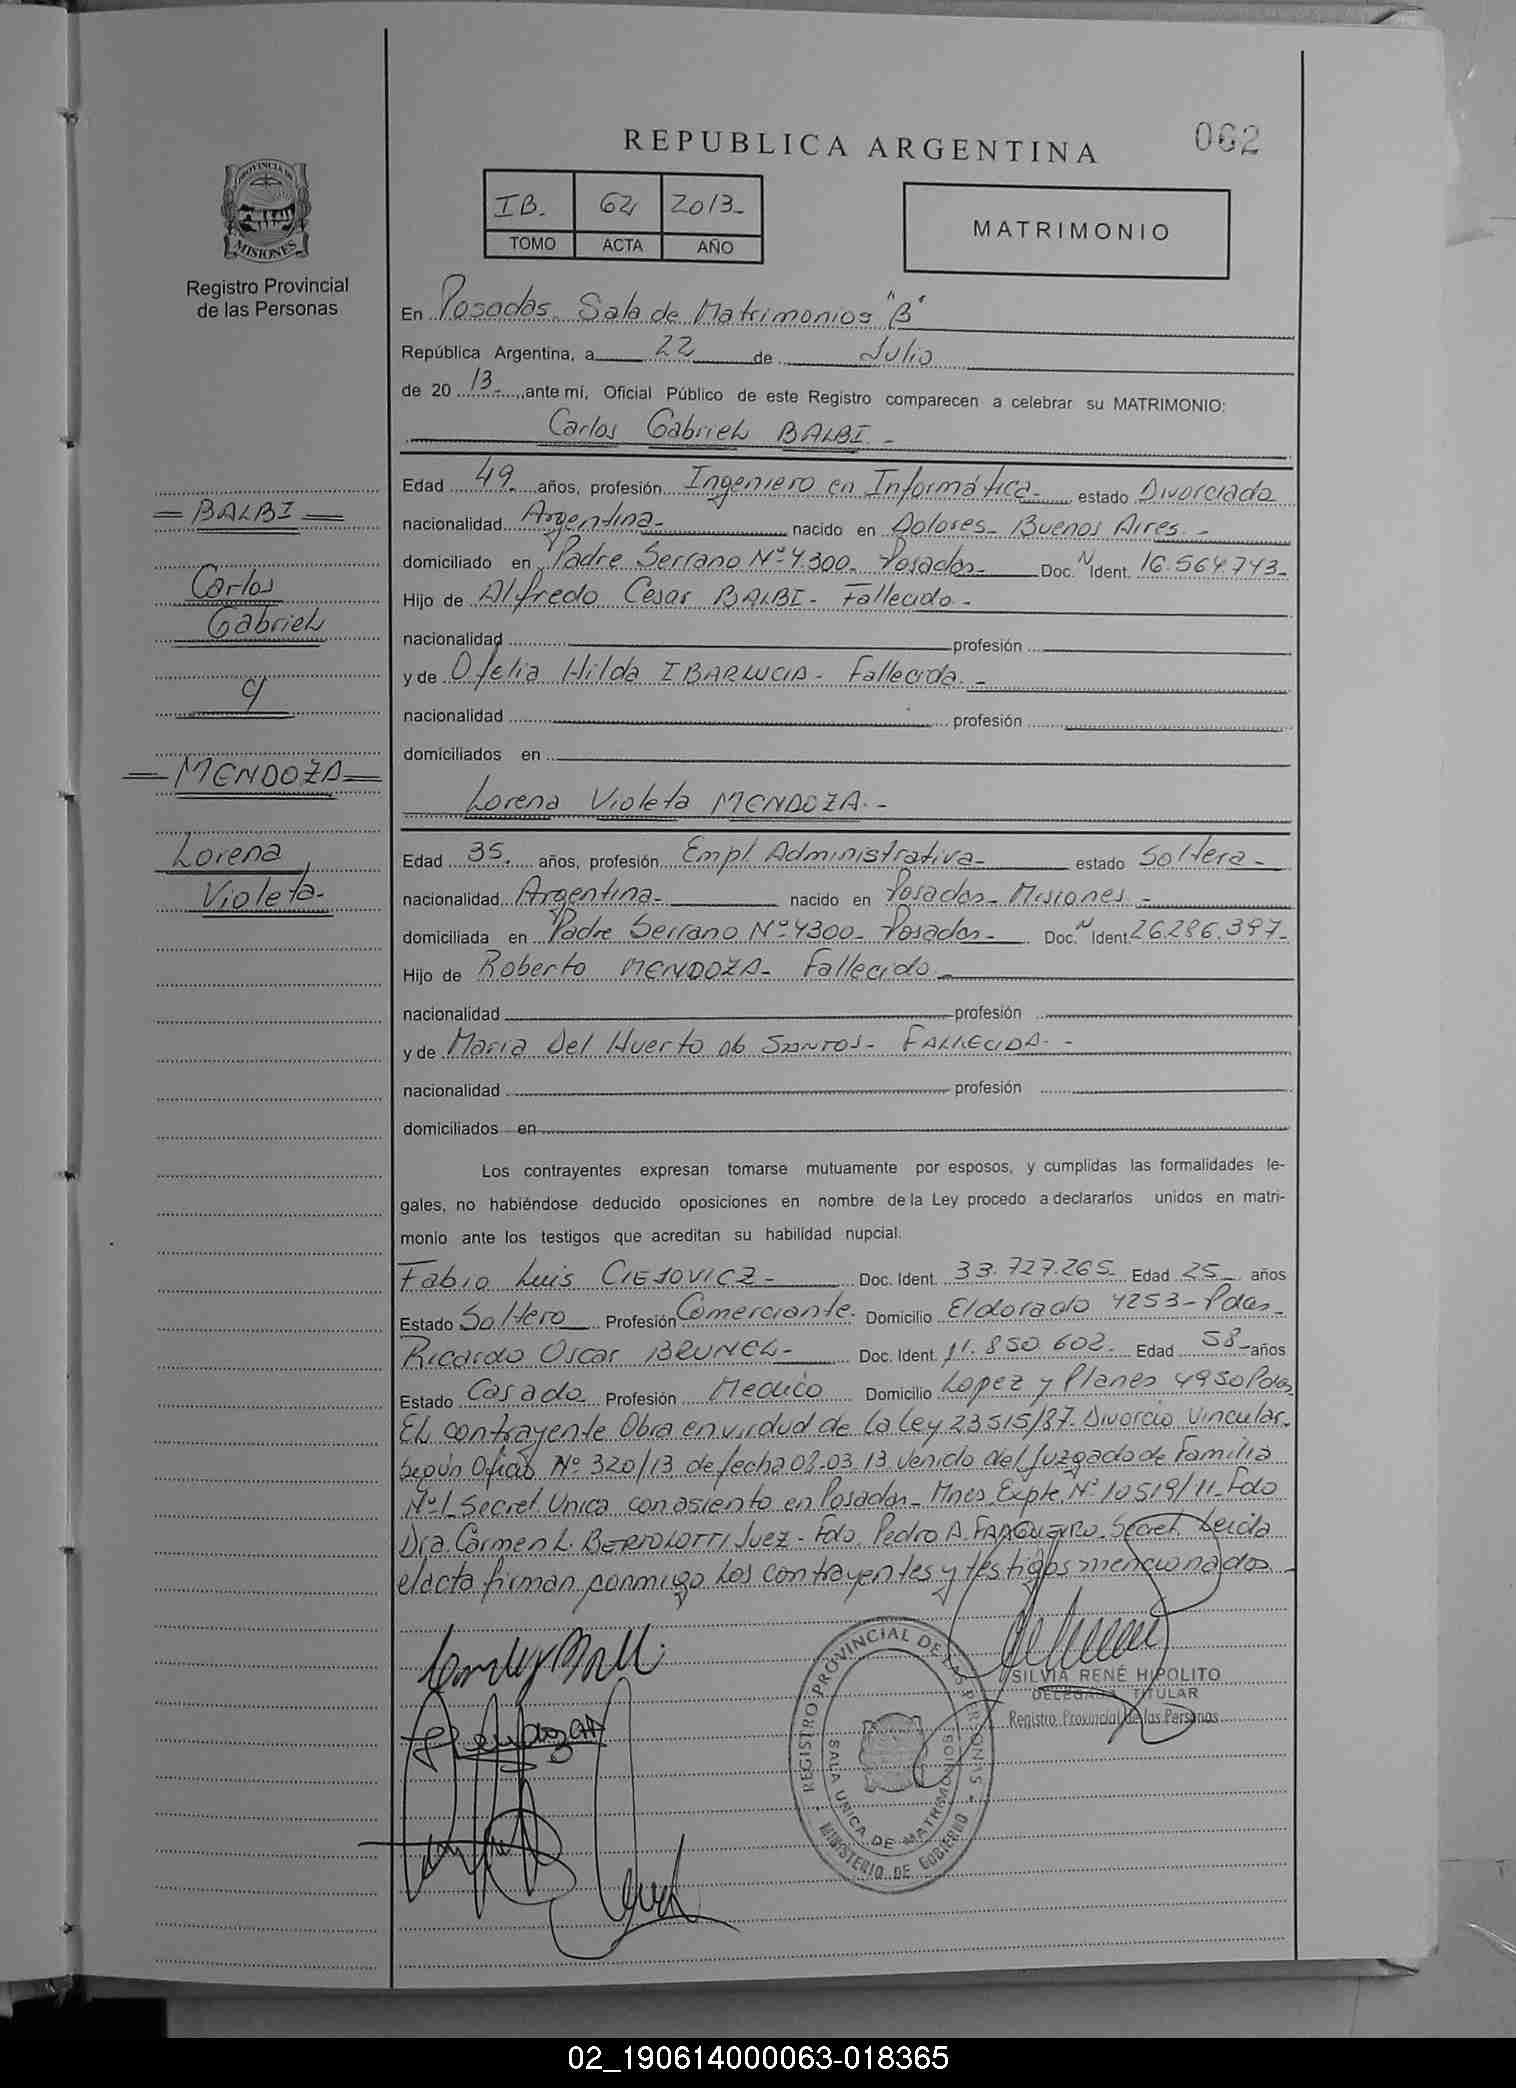 REPUBLICA ARGENTINA
062
PROVINCIA DE
MISIONES
Registro Provincial
de las Personas
IB. 62 2013-
TOMO ACTA AÑO
MATRIMONIO
En Posadas. Sala de Matrimonios "B"
República Argentina, a 22 de Julio
de 20 13 ante mí, Oficial Público de este Registro comparecen a celebrar su MATRIMONIO:
Carlos Gabriel BALBI.-
Edad 49 años, profesión Ingeniero en Informática- estado Divorciado
nacionalidad Argentina- nacido en Dolores- Buenos Aires.-
domiciliado en Padre Serrano Nº 4.300- Posadas- Doc. N Ident. 16.564.743-
Hijo de Alfredo Cesar BALBI- Fallecido-
nacionalidad profesión
y de Ofelia Hilda IBARLUCIA- Fallecida.-
nacionalidad profesión
domiciliados en
Lorena Violeta MENDOZA.-
Edad 35. años, profesión Empl. Administrativa- estado Soltera-
nacionalidad Argentina- nacido en Posadas- Misiones.-
domiciliada en Padre Serrano Nº 4300- Posadas- Doc. N Ident 26.286.397-
Hijo de Roberto MENDOZA- Fallecido-
nacionalidad profesión
y de Maria Del Huerto SANTOS- FALLECIDA.-
nacionalidad profesión
domiciliados en
Los contrayentes expresan tomarse mutuamente por esposos, y cumplidas las formalidades le-
gales, no habiéndose deducido oposiciones en nombre de la Ley procedo a declararlos unidos en matri-
monio ante los testigos que acreditan su habilidad nupcial.
Fabio Luis CIESOVICZ- Doc. Ident. 33.727.265- Edad 25 años
Estado Soltero Profesión Comerciante. Domicilio Eldorado 4253- Pdas-
Ricardo Oscar BRUNEL- Doc. Ident. 11.850.602- Edad 58- años
Estado Casado Profesión Medico Domicilio Lopez y Planes 4950 Pdas
El contrayente Obra en virdud de la Ley 23515/87- Divorcio Vincular-
según Oficio Nº 320/13 de fecha 08-03-13 venido del Juzgado de Familia
Nº 1 Secret. Unica con asiento en Posadas- Mnes. Expte. Nº 10519/11- Fdo
Dra. Carmen L. BERTOLOTTI Juez- Fdo. Pedro A. Secret. Leida
el acta firman conmigo los contrayentes y testigos mencionados-
= BALBI =
Carlos
Gabriel
c/
= MENDOZA =
Lorena
Violeta-
REGISTRO PROVINCIAL DE LAS PERSONAS
SALA UNICA DE MATRIMONIOS
MINISTERIO DE GOBIERNO
SILVIA RENÉ HIPOLITO
DELEGADA TITULAR
Registro Provincial de las Personas
02_190614000063-018365